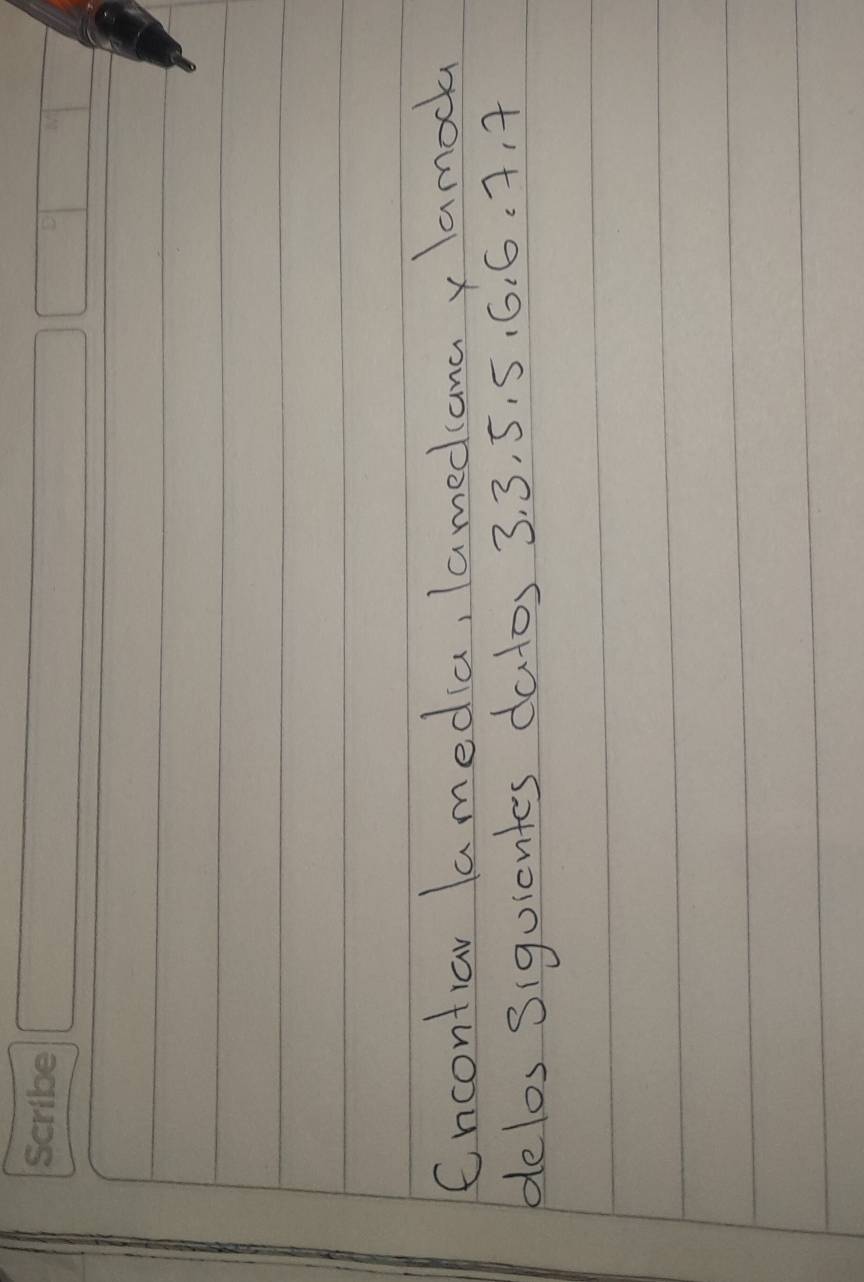 Scribe
D M
Encontrar la media, la mediana y la moda
de los siguientes datos 3,3,5,5,6,6,7,7